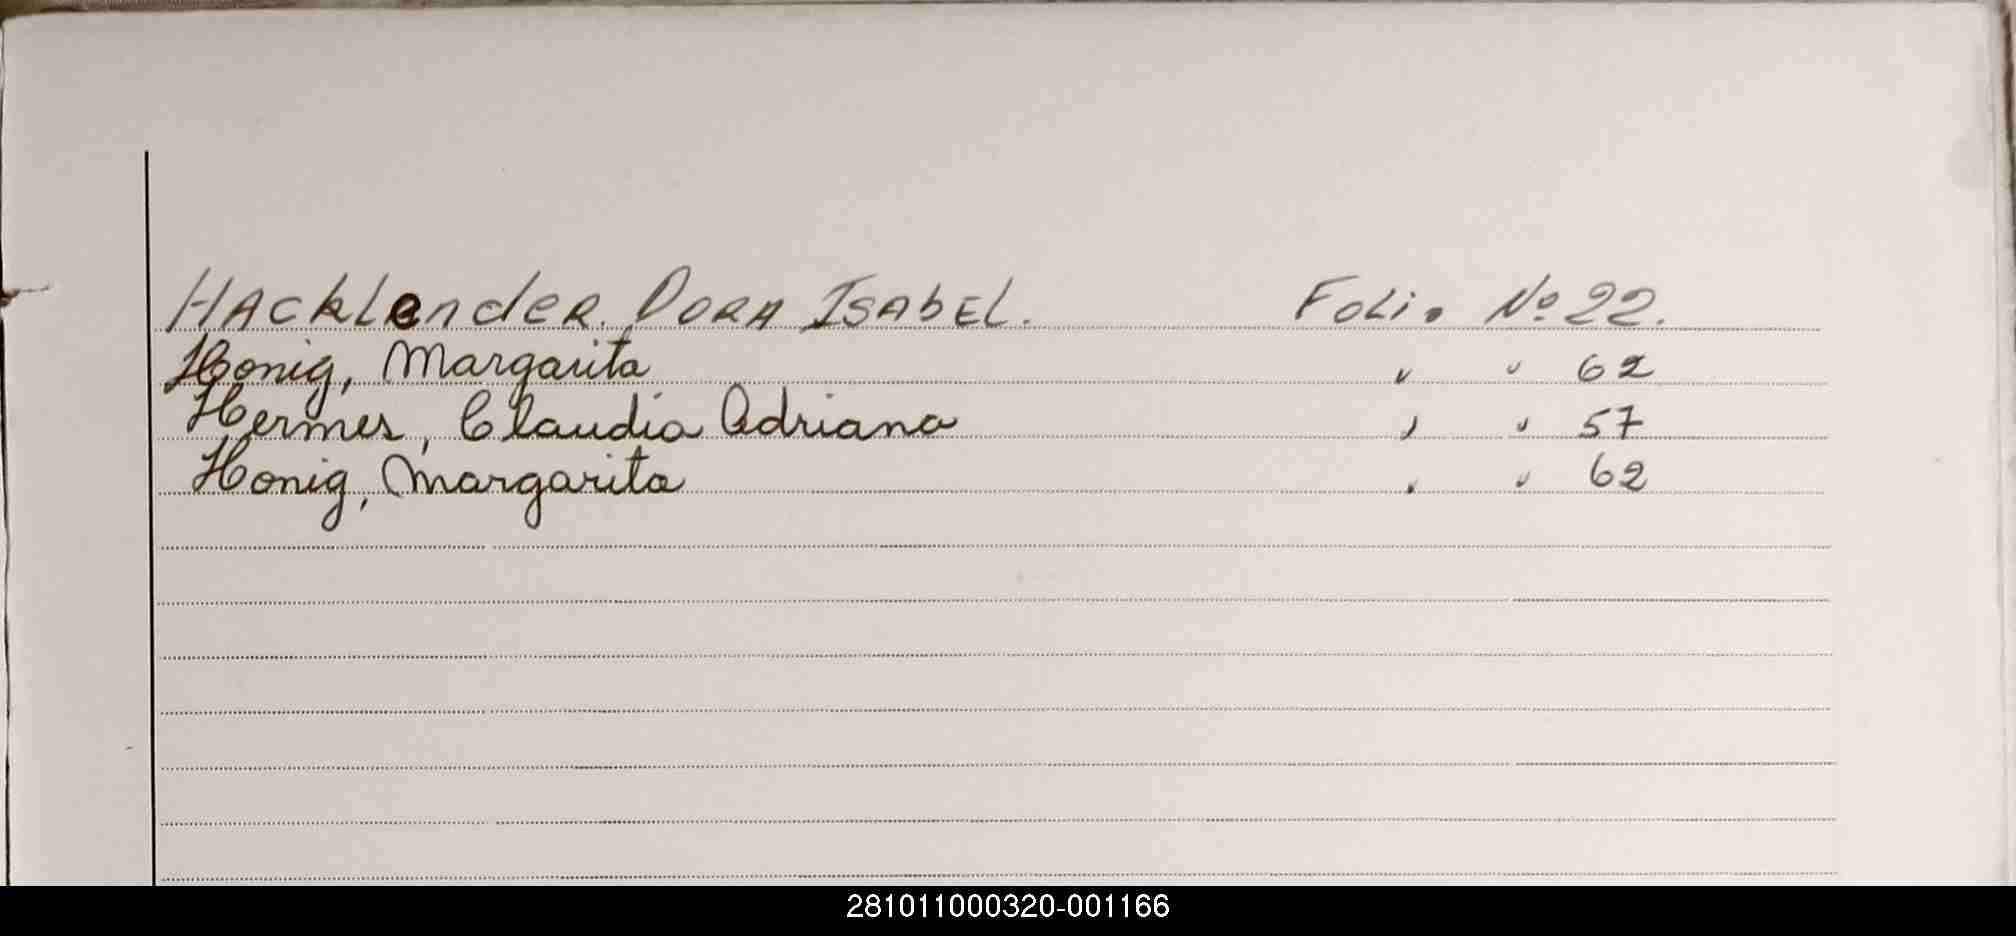 HACKLENDER. DORA ISABEL. Folio Nº 22.
Honig, Margarita " " 62
Hermes, Claudia Adriana " " 57
Honig, Margarita " " 62
281011000320-001166